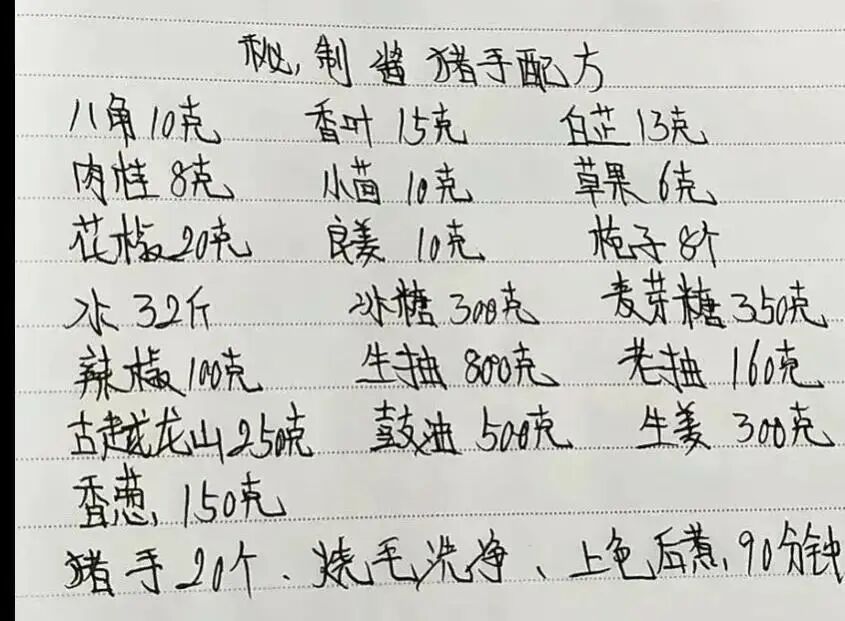 秘制酱猪手配方
八角10克 香叶15克 白芷13克
肉桂8克 小茴10克 草果6克
花椒20克 良姜10克 栀子8个
水32斤 冰糖300克 麦芽糖350克
辣椒100克 生抽800克 老抽160克
古越龙山250克 鼓油500克 生姜300克
香葱150克
猪手20个、烧毛洗净、上色后煮90分钟